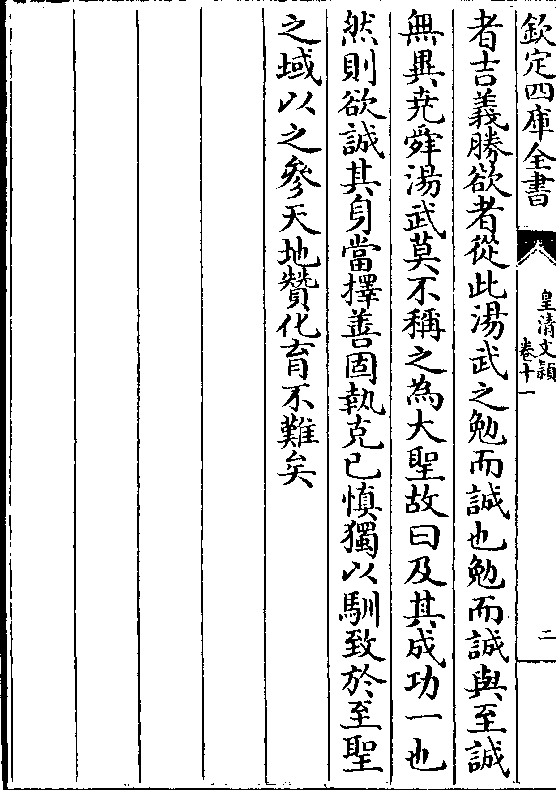 欽定四庫全書
皇清文穎
卷十一
二
者吉義勝欲者從此湯武之勉而誠也勉而誠與至誠
無異堯舜湯武莫不稱之為大聖故曰及其成功一也
然則欲誠其身當擇善固執克已慎獨以馴致於至聖
之域以之參天地贊化育不難矣